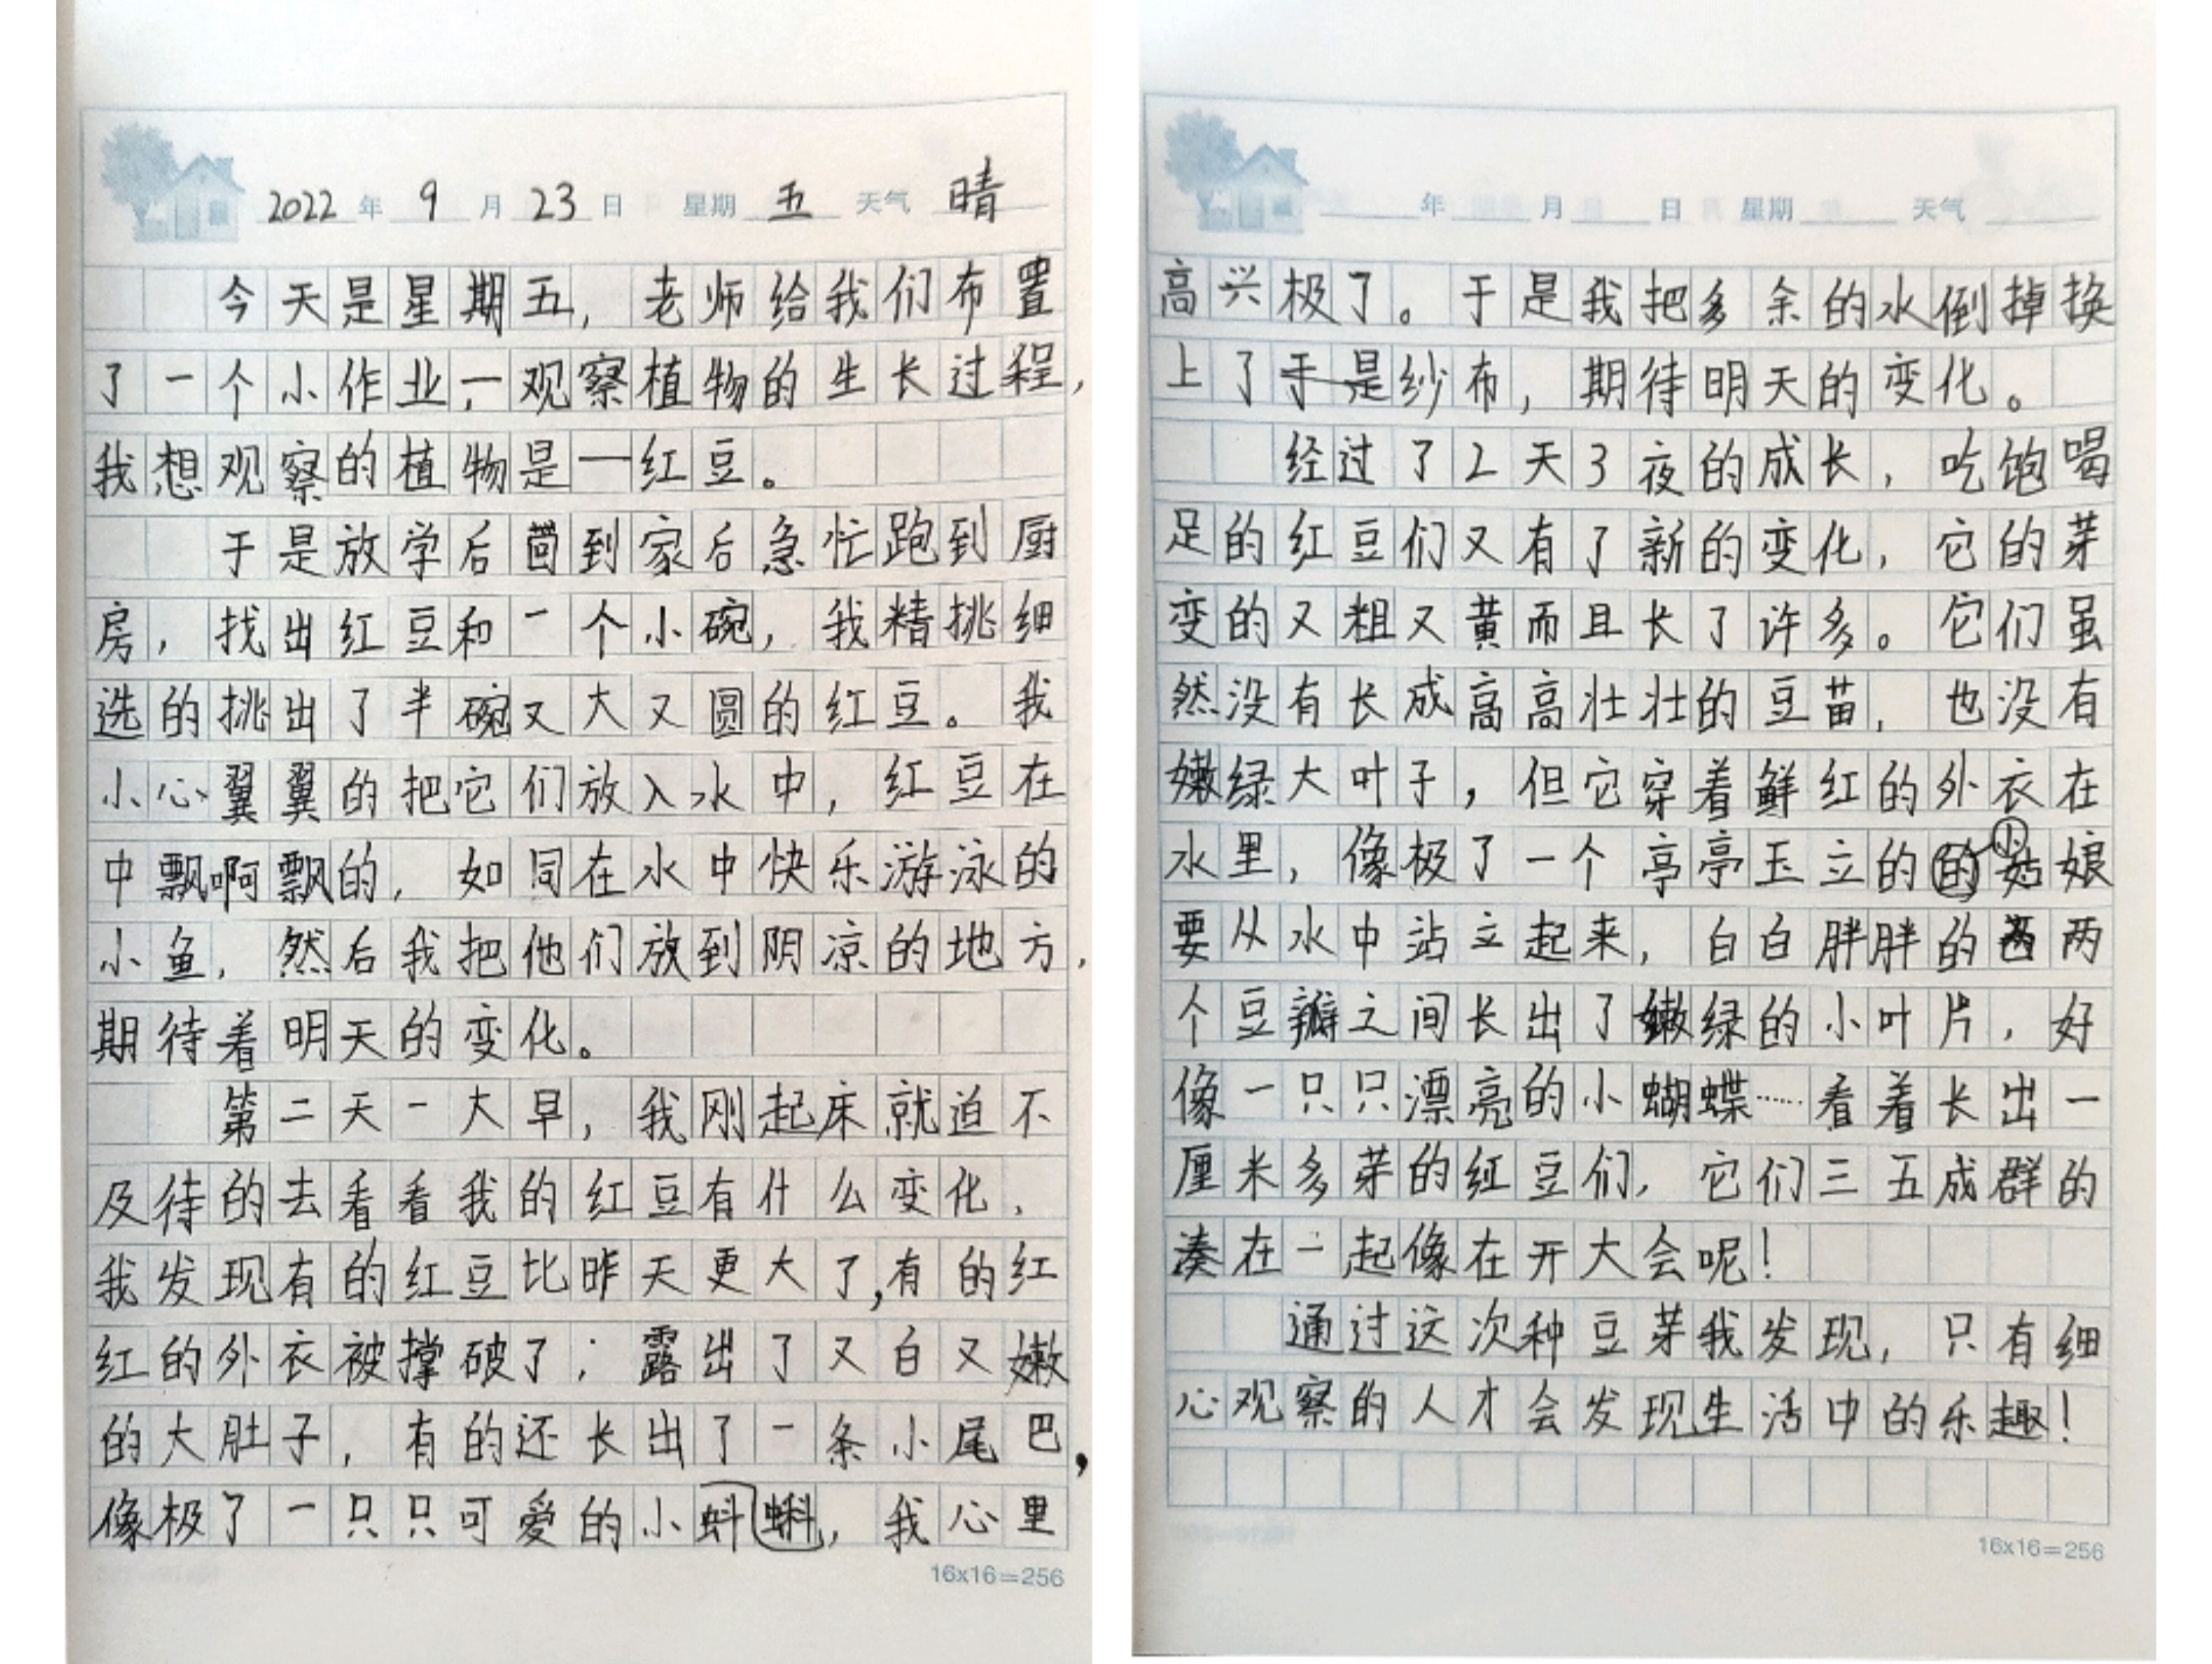 2022年 9月 23日 星期五 天气 晴
今天是星期五，老师给我们布置
了一个小作业，一观察植物的生长过程，
我想观察的植物是一红豆。
于是放学后回到家后急忙跑到厨
房，找出红豆和一个小碗，我精挑细
选的挑出了半碗又大又圆的红豆。我
小心翼翼的把它们放入水中，红豆在
中飘啊飘的，如同在水中快乐游泳的
小鱼，然后我把他们放到阴凉的地方，
期待着明天的变化。
第二天一大早，我刚起床就迫不
及待的去看看我的红豆有什么变化，
我发现有的红豆比昨天更大了，有的红
红的外衣被撑破了；露出了又白又嫩
的大肚子，有的还长出了一条小尾巴，
像极了一只只可爱的小蚪蝌，我心里
16x16=256
年 月 日 星期 天气
高兴极了。于是我把多余的水倒掉换
上了于是纱布，期待明天的变化。
经过了2天3夜的成长，吃饱喝
足的红豆们又有了新的变化，它的芽
变的又粗又黄而且长了许多。它们虽
然没有长成高高壮壮的豆苗，也没有
嫩绿大叶子，但它穿着鲜红的外衣在
水里，像极了一个亭亭玉立的的小姑娘
要从水中站立起来，白白胖胖的两
个豆瓣之间长出了嫩绿的小叶片，好
像一只只漂亮的小蝴蝶……看着长出一
厘米多芽的红豆们，它们三五成群的
凑在一起像在开大会呢！
通过这次种豆芽我发现，只有细
心观察的人才会发现生活中的乐趣！
16x16=256